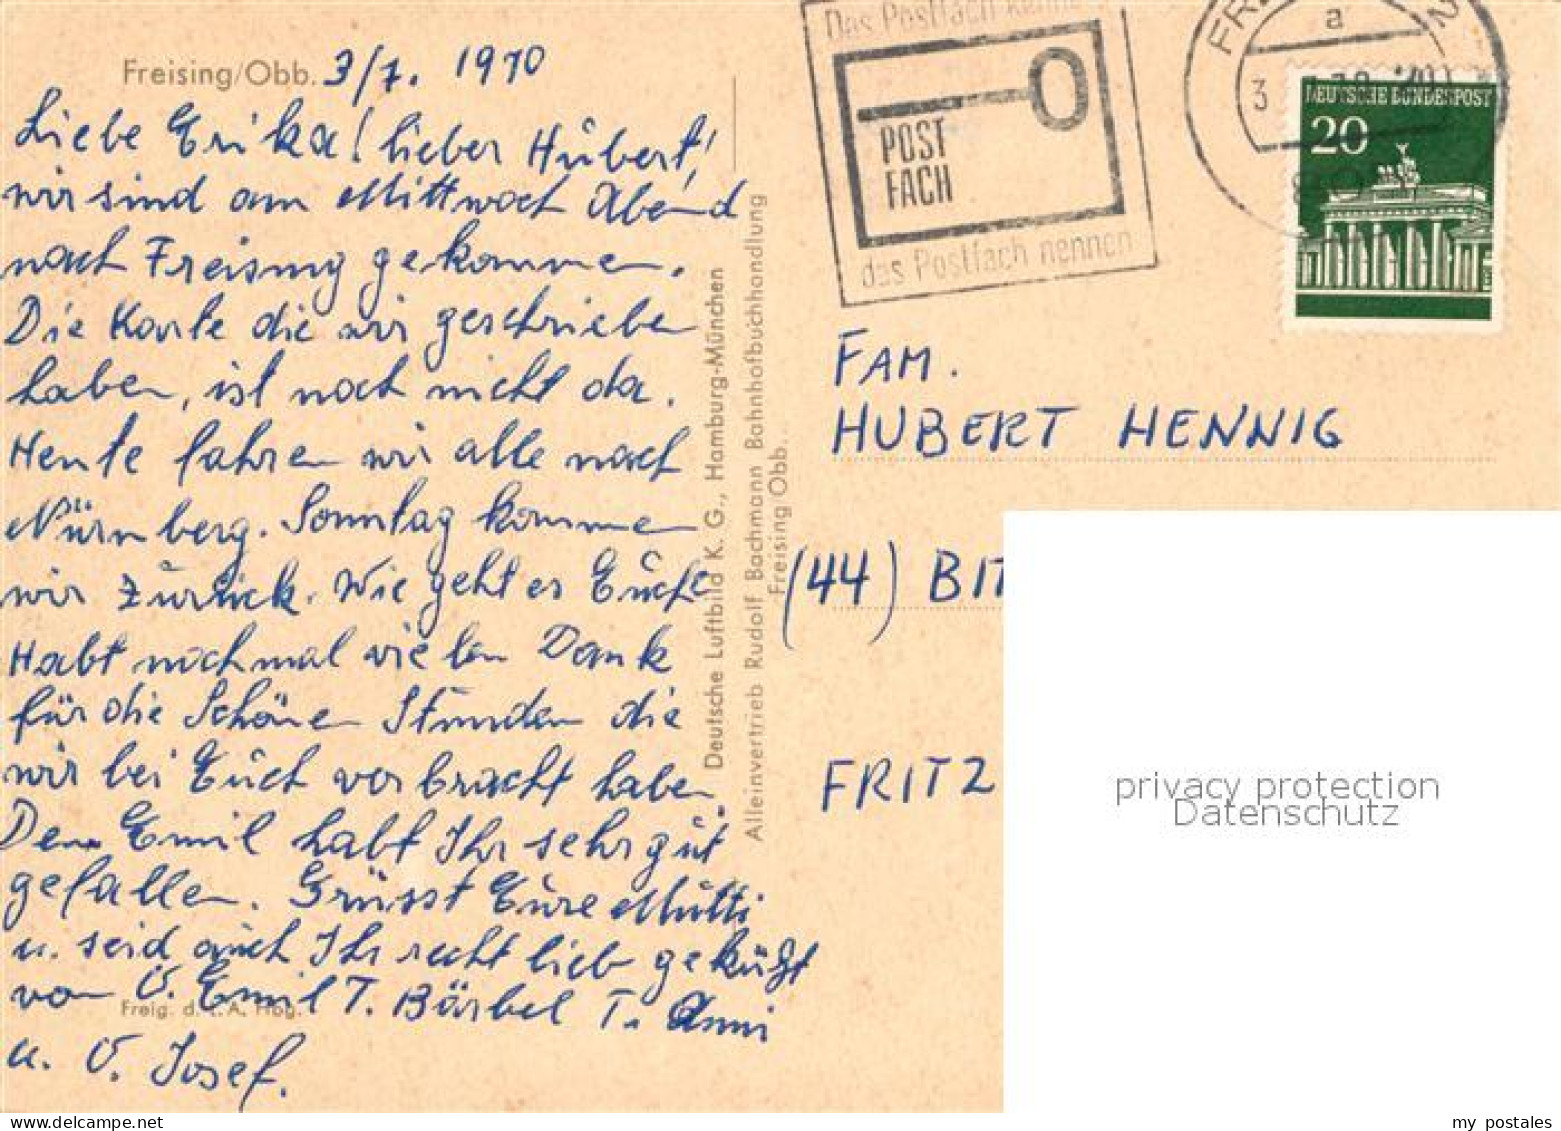 Freising/Obb. 3/7. 1970
Liebe Erika! lieber Hubert!
wir sind am Mittwoch Abend
nach Freising gekommen.
Die Karte die wir geschrieben
haben, ist noch nicht da.
Heute fahren wir alle nach
Nürnberg. Sonntag kommen
wir zurück. Wie geht es Euch?
Habt nochmal vielen Dank
für die Schöne Stunden die
wir bei Euch verbracht haben.
Den Emil habt Ihr sehr gut
gefallen. Grüsst Eure Mutti
u. seid auch Ihr recht lieb geküßt
von O. Emil T. Bärbel T. Anni
u. O. Josef.
Freig. d. L.A. Hbg.
Deutsche Luftbild K. G., Hamburg-München
Alleinvertrieb Rudolf Bachmann Bahnhofbuchhandlung
Freising/Obb...
Das Postfach kennen
POST
FACH
das Postfach nennen
a
3
DEUTSCHE BUNDESPOST
20
FAM.
HUBERT HENNIG
(44) BIT
FRITZ
privacy protection
Datenschutz
my postales